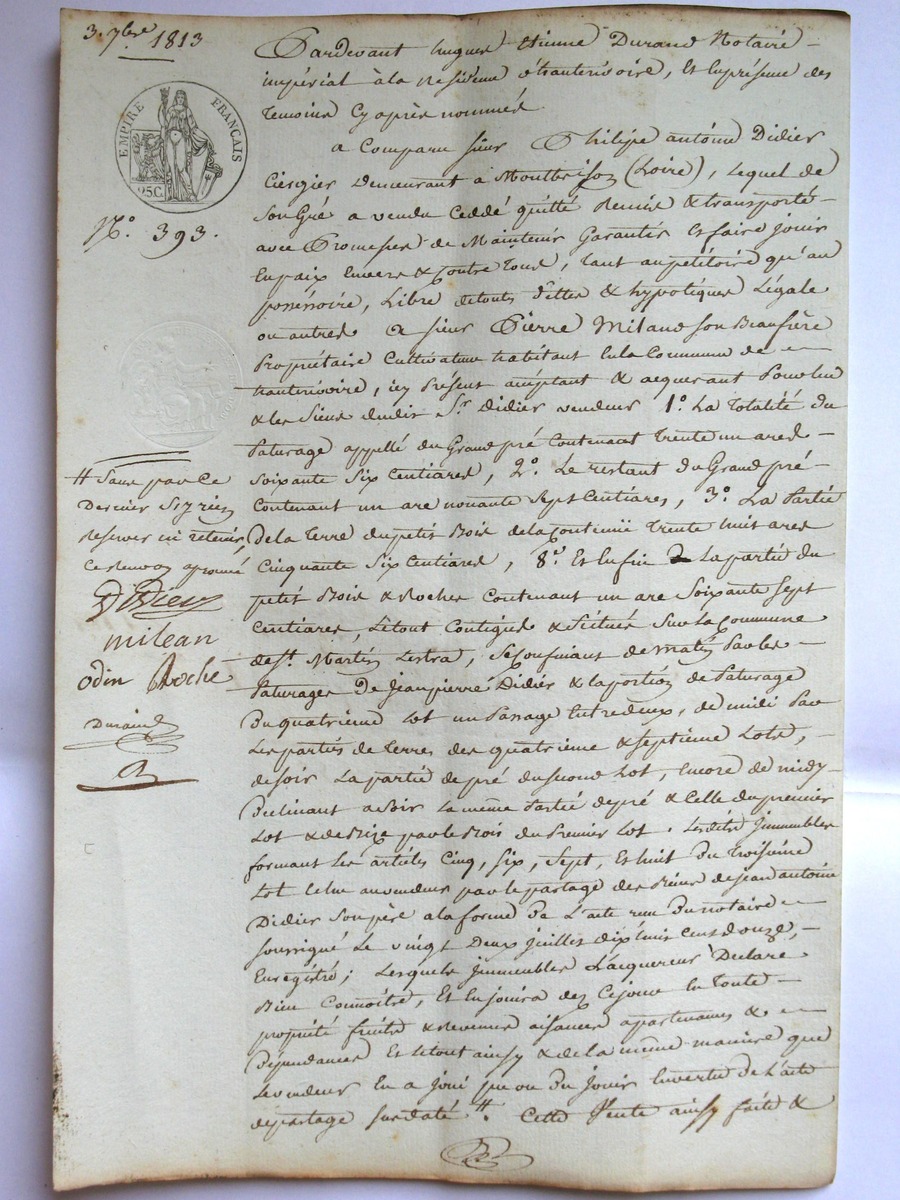 3. 7bre 1813
EMPIRE FRANÇAIS
25C.
N.o 393.
Pardevant hugues Etienne Durand Notaire
impérial à la Residence d'hauterivoire, Et En présence des
Temoins Cy après nommés
a Comparu sieur Philipe antoine Didier
Ciergier Demeurant a Montbrison (Loire), Lequel de
Son Gré a vendu Ceddé quitté Remis & transporté
avec Promesse de Maintenir Garantir Et faire jouir
En paix Envers & Contre Tous, Tant au petitoire qu'au
possessoire, Libre de touts dettes & hypotéques Légale
ou autres a sieur Pierre Miland son Beaufrère
Propriétaire Cultivateur habitant En la Commune de
hauterivoire, icy Présent acceptant & acquerant Pour lui
& les Siens dudit Sr. Didier vendeur 1.o La Totalité du
Paturage appellé du Grand pré Contenant Trente un ares
soixante Six Centiares, 2.o Le restant du Grand pré
Contenant un are nonante Sept Centiares, 3.o La Partie
De la Terre du petit Bois de la Contenue Trente huit ares
Cinquante Six Centiares, Et Enfin La partie du
petit Bois & Rocher Contenant un are Soixante Sept
Centiares, Le tout Contigue & Scitué Sur La Commune
de St. Martin Lestra, Se Confinant de matin Par les
Paturages De Jean pierre Didier & la portion de Paturage
Du quatrieme Lot un Passage Entredeux, de midi Par
Les parties de Terres des quatrieme & septieme Lots,
de soir La partie de pré du second Lot, Encore de midy
Declinant a Soir La même Partie de pré & Celle du premier
Lot & de Bize par le Bois du Premier Lot. Lesdits Immeubles
formant Les articles Cinq, Six, Sept, Et huit du Troisieme
Lot Echu au vendeur par le partage des Biens de Jean antoine
Didier Son père a la forme De L'acte reçu Du notaire
soussigné Le vingt Deux juillet dix huit Cent Douze,
Enregistré; Lesquels Immeubles L'acquereur Declare
Bien Connoitre, Et En jouira dez Ce jour En Toute
propriété fruits & Revenus aisances apartenances &
Dépendances Et le tout ainsy & de la même maniere que
Le vendeur En a joui pu ou Du jouir En vertu de L'acte
de partage Susdaté #. Cette Vente ainsy faite &
# Sans par Ce
Dernier S'y rien
Reserver ni Retenir
Ce Renvoy aprouvé
Didier
milean
odin Roche
Durand